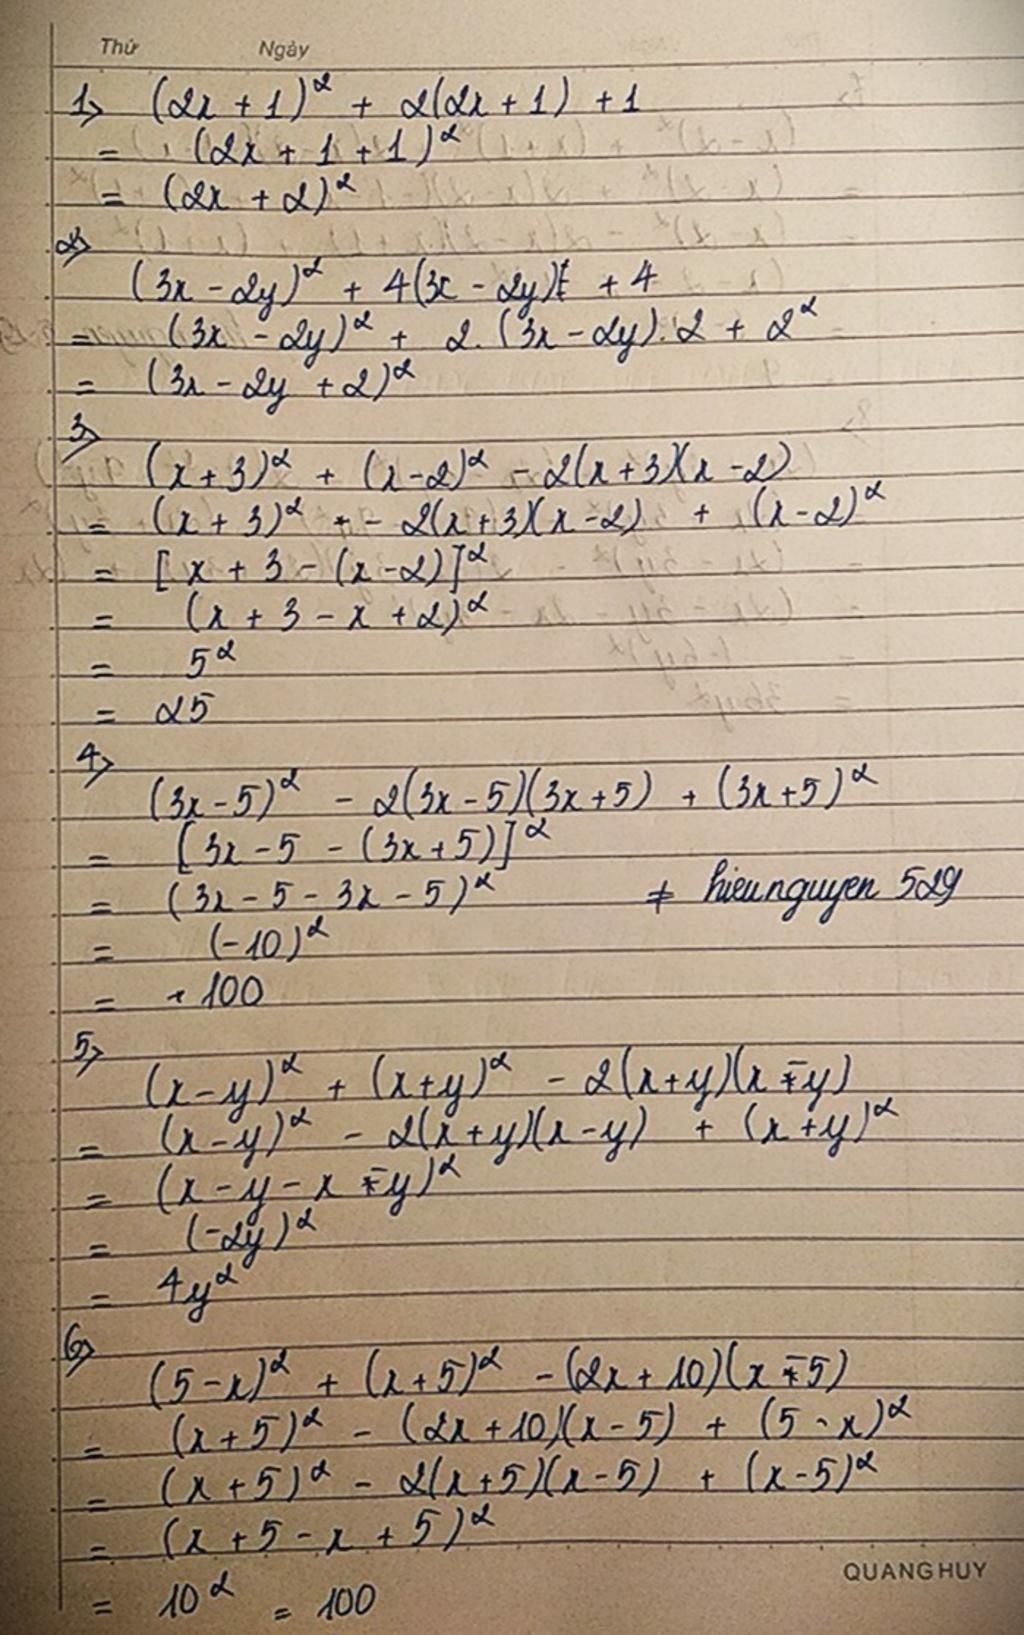 Thứ Ngày
1> (2x + 1)² + 2(2x + 1) + 1
= (2x + 1 + 1)²
= (2x + 2)²
2>
(3x - 2y)² + 4(3x - 2y) + 4
= (3x - 2y)² + 2.(3x - 2y).2 + 2²
= (3x - 2y + 2)²
3>
(x + 3)² + (x - 2)² - 2(x + 3)(x - 2)
= (x + 3)² - 2(x + 3)(x - 2) + (x - 2)²
= [x + 3 - (x - 2)]²
= (x + 3 - x + 2)²
= 5²
= 25
4>
(3x - 5)² - 2(3x - 5)(3x + 5) + (3x + 5)²
= [3x - 5 - (3x + 5)]²
= (3x - 5 - 3x - 5)² # hieunguyen 529
= (-10)²
= 100
5>
(x - y)² + (x + y)² - 2(x + y)(x - y)
= (x - y)² - 2(x + y)(x - y) + (x + y)²
= (x - y - x - y)²
= (-2y)²
= 4y²
6>
(5 - x)² + (x + 5)² - (2x + 10)(x - 5)
= (x + 5)² - (2x + 10)(x - 5) + (5 - x)²
= (x + 5)² - 2(x + 5)(x - 5) + (x - 5)²
= (x + 5 - x + 5)²
QUANG HUY
= 10² = 100